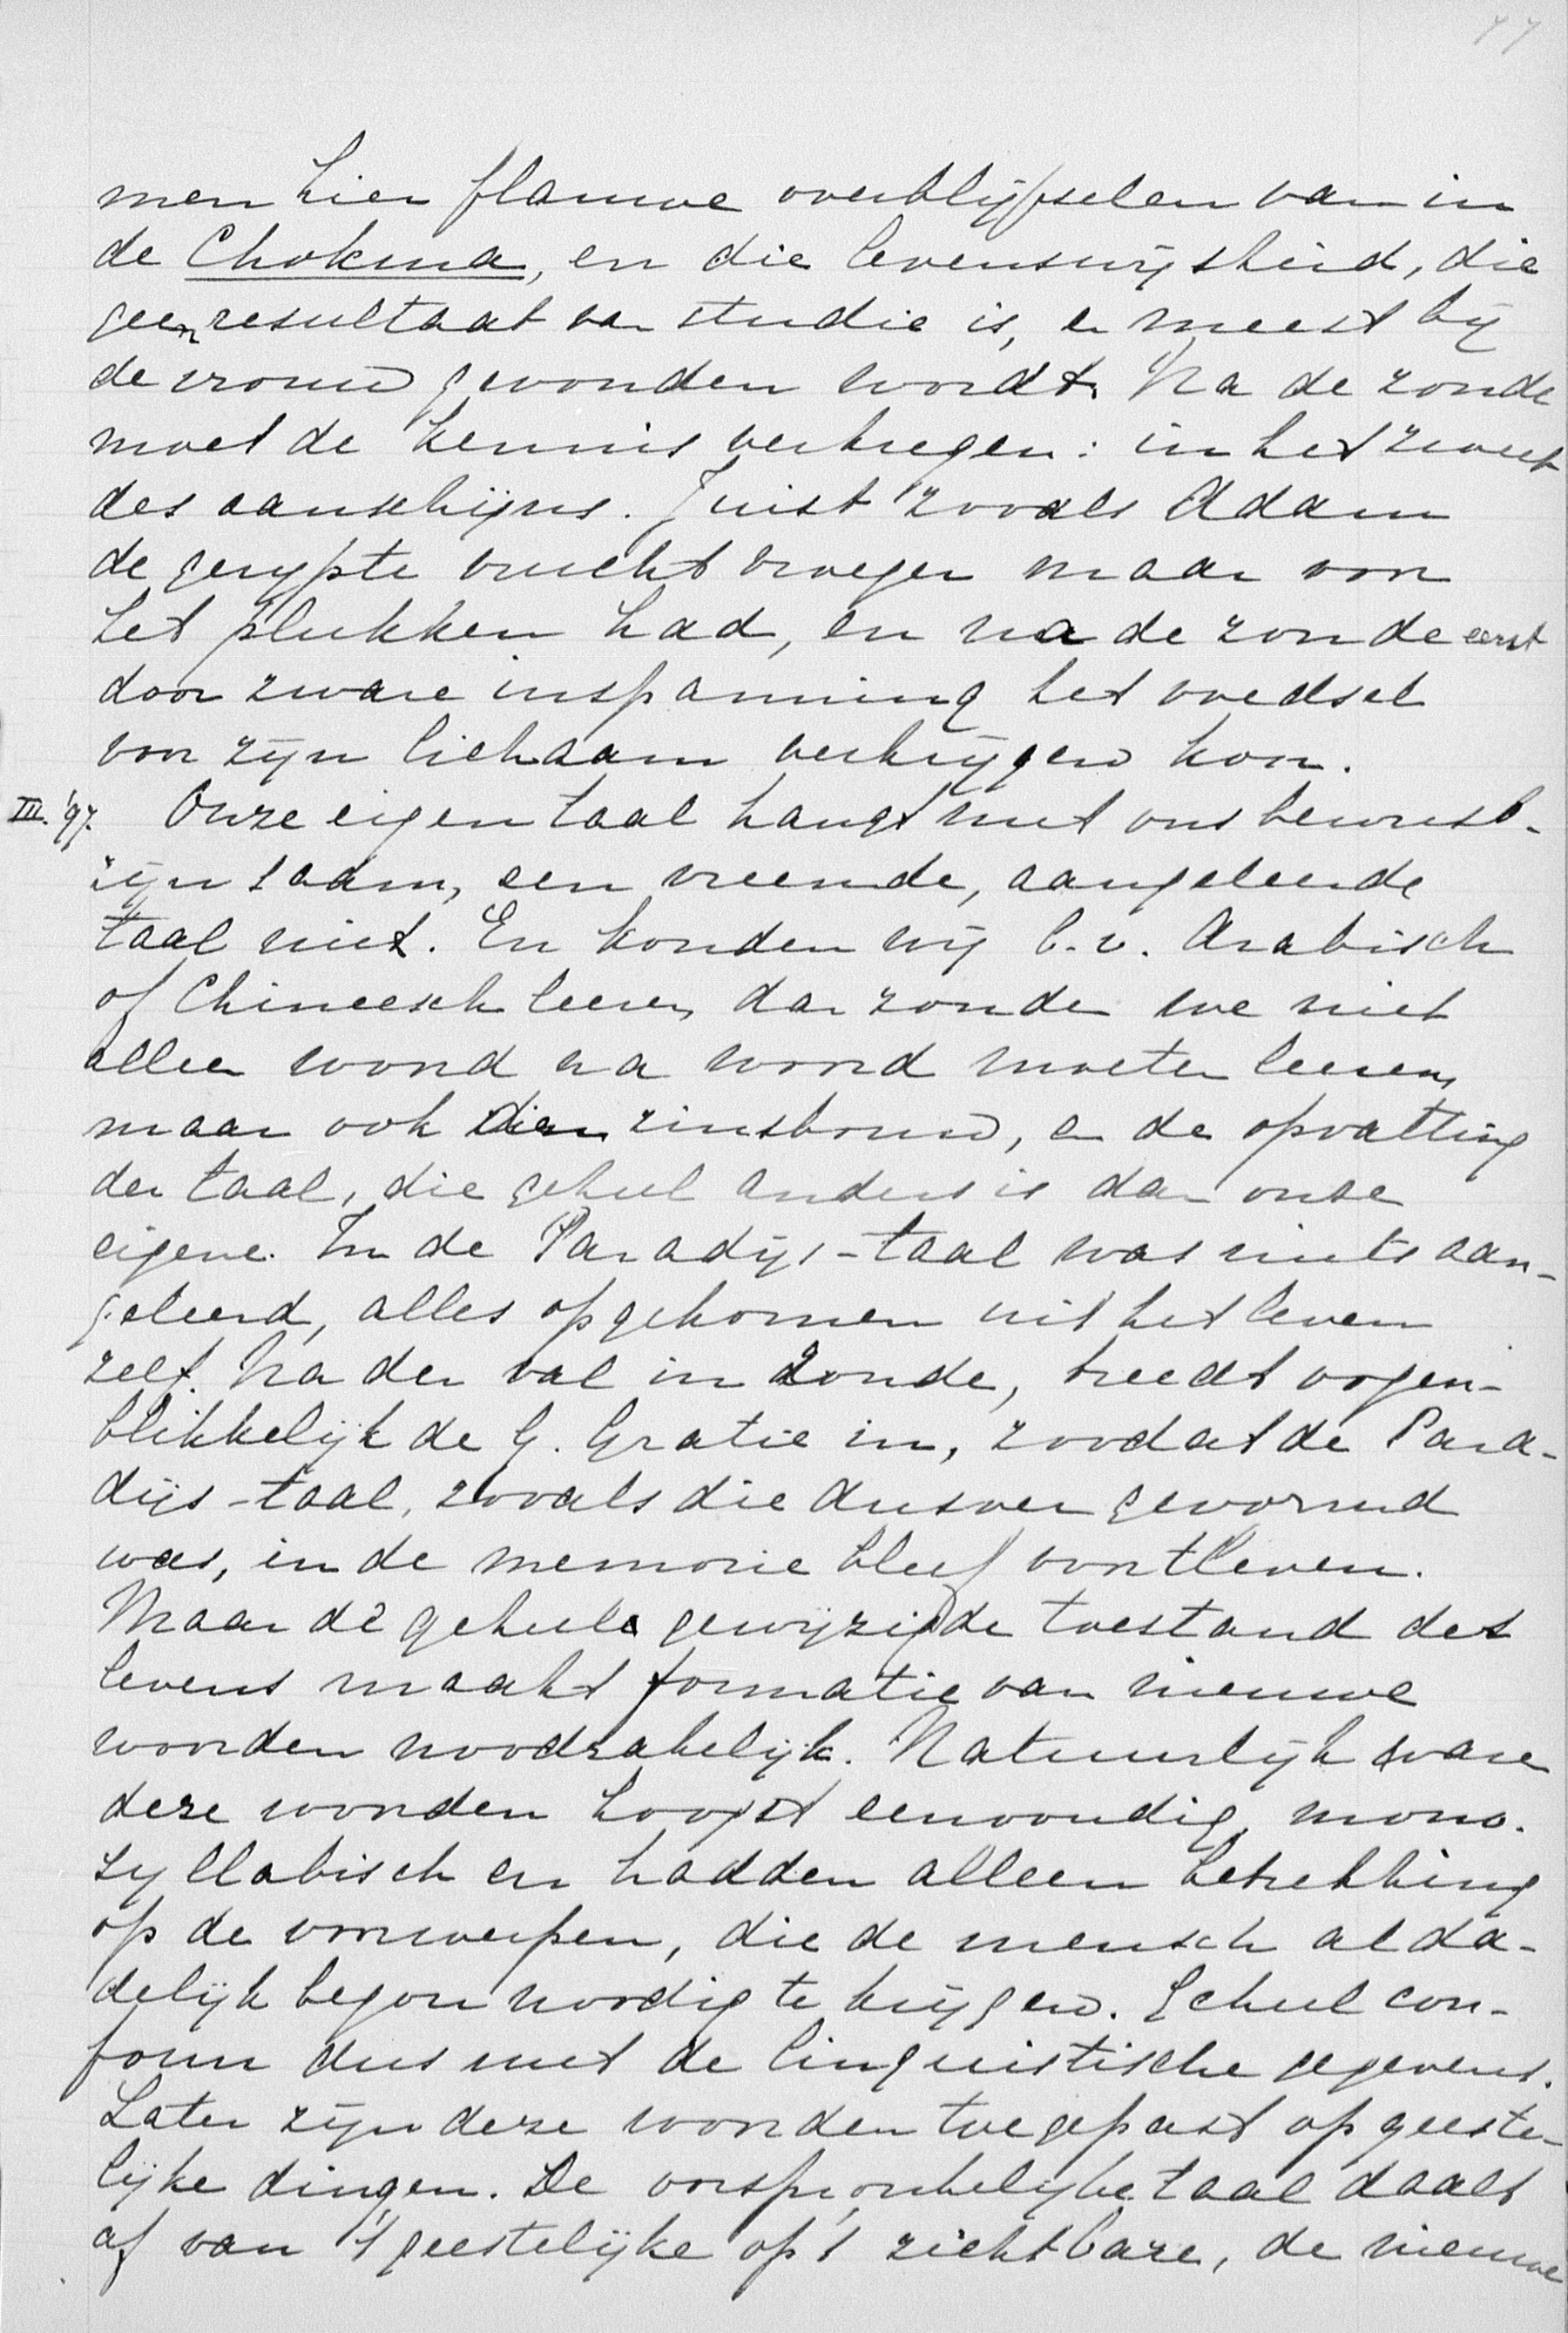 77
men hier flauwe overblijfselen van in
de Chokma, en die levenswijsheid, die
geen resultaat van studie is, en meest bij
de vrouw gevonden wordt. Na de zonde
moet de kennis verkregen: in het zweet
des aanschijns. Juist zooals Adam
de gerijpte vrucht vroeger maar voor
het plukken had, en na de zonde eerst
door zware inspanning het voedsel
voor zijn lichaam verkrijgen kon.
III. '97. Onze eigen taal hangt met ons bewust-
zijn saam, een vreemde, aangeleerde
taal niet. En konden wij b.v. Arabisch
of Chineesch leeren, dan zouden we niet
alleen woord na woord moeten leeren,
maar ook dien zinsbouw, en de opvatting
der taal, die geheel anders is dan onze
eigene. In de Paradijs-taal was niets aan-
geleerd, alles opgekomen uit het leven
zelf. Na den val in zonde, treedt oogen-
blikkelijk de G. Gratie in, zoodat de Para-
dijs-taal, zooals die dusver gevormd
was, in de memorie bleef voortleven.
Maar de geheele gewijzigde toestand des
levens maakt formatie van nieuwe
woorden noodzakelijk. Natuurlijk ware
deze woorden hoogst eenvoudig, mono-
syllabisch en hadden alleen betrekking
op de voorwerpen, die de mensch alda-
delijk begon noodig te krijgen. Geheel con-
form dus met de linguistische gegevens.
Later zijn deze woorden toegepast op geeste-
lijke dingen. De oorspronkelijke taal daalt
af van 't geestelijke op 't zichtbare, de nieuwe